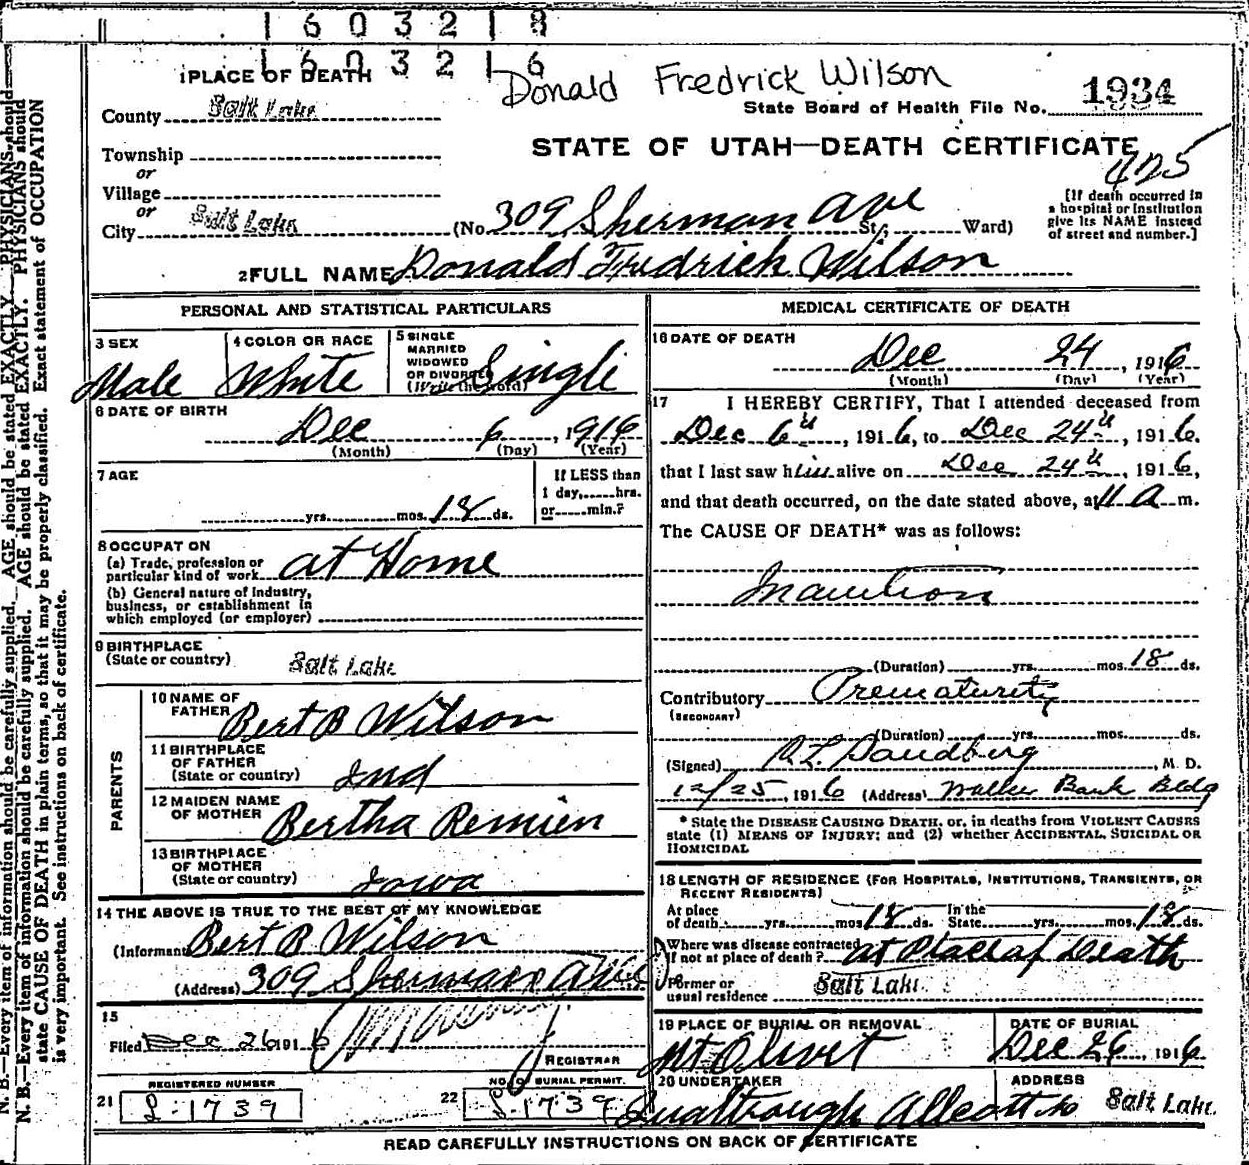 1 6 0 3 2 1 8
1 6 0 3 2 1 6
Donald Fredrick Wilson
1 PLACE OF DEATH
State Board of Health File No. 1934
County Salt Lake
STATE OF UTAH—DEATH CERTIFICATE
425
Township
or
Village
or
City Salt Lake (No. 309 Sherman Ave St; Ward)
[If death occurred in
a hospital or institution
give its NAME instead
of street and number.]
2 FULL NAME Donald Fredrich Wilson
PERSONAL AND STATISTICAL PARTICULARS
3 SEX
Male
4 COLOR OR RACE
White
5 SINGLE
MARRIED
WIDOWED
OR DIVORCED
(Write the word)
Single
6 DATE OF BIRTH
Dec 6, 1916
(Month) (Day) (Year)
7 AGE
yrs. mos. 18 ds.
If LESS than
1 day, hrs.
or min.?
8 OCCUPATON
(a) Trade, profession or
particular kind of work at Home
(b) General nature of Industry,
business, or establishment in
which employed (or employer)
9 BIRTHPLACE
(State or country) Salt Lake
PARENTS
10 NAME OF
FATHER Bert B Wilson
11 BIRTHPLACE
OF FATHER
(State or country) Ind
12 MAIDEN NAME
OF MOTHER Bertha Remien
13 BIRTHPLACE
OF MOTHER
(State or country) Iowa
14 THE ABOVE IS TRUE TO THE BEST OF MY KNOWLEDGE
(Informant Bert B Wilson
(Address) 309 Sherman Ave
15
Filed Dec 26 1916
REGISTRAR
REGISTERED NUMBER
21 L-1739
NO. OF BURIAL PERMIT.
22 L-1739
MEDICAL CERTIFICATE OF DEATH
16 DATE OF DEATH
Dec 24, 1916
(Month) (Day) (Year)
17 I HEREBY CERTIFY, That I attended deceased from
Dec 6th, 1916, to Dec 24th, 1916.
that I last saw him alive on Dec 24th, 1916,
and that death occurred, on the date stated above, at 11 a m.
The CAUSE OF DEATH* was as follows:
Inanition
(Duration) yrs. mos. 18 ds.
Contributory Prematurity
(SECONDARY)
(Duration) yrs. mos. ds.
(Signed) M. D.
12/25, 1916 (Address) Walker Bank Bldg
* State the DISEASE CAUSING DEATH, or, in deaths from VIOLENT CAUSES
state (1) MEANS OF INJURY; and (2) whether ACCIDENTAL, SUICIDAL OR
HOMICIDAL
18 LENGTH OF RESIDENCE (FOR HOSPITALS, INSTITUTIONS, TRANSIENTS, OR
RECENT RESIDENTS)
At place
of death yrs. mos. 18 ds. In the
State yrs. mos. 18 ds.
Where was disease contracted
if not at place of death? at Place of Death
Former or
usual residence Salt Lake
19 PLACE OF BURIAL OR REMOVAL
Mt Olivet
DATE OF BURIAL
Dec 26, 1916
20 UNDERTAKER
Allcott Co
ADDRESS
Salt Lake
READ CAREFULLY INSTRUCTIONS ON BACK OF CERTIFICATE
N. B.—Every item of information should be carefully supplied. AGE should be stated EXACTLY. PHYSICIANS should
N. B.—Every item of information should be carefully supplied. AGE should be stated EXACTLY. PHYSICIANS should
state CAUSE OF DEATH in plain terms, so that it may be properly classified. Exact statement of OCCUPATION
is very important. See instructions on back of certificate.